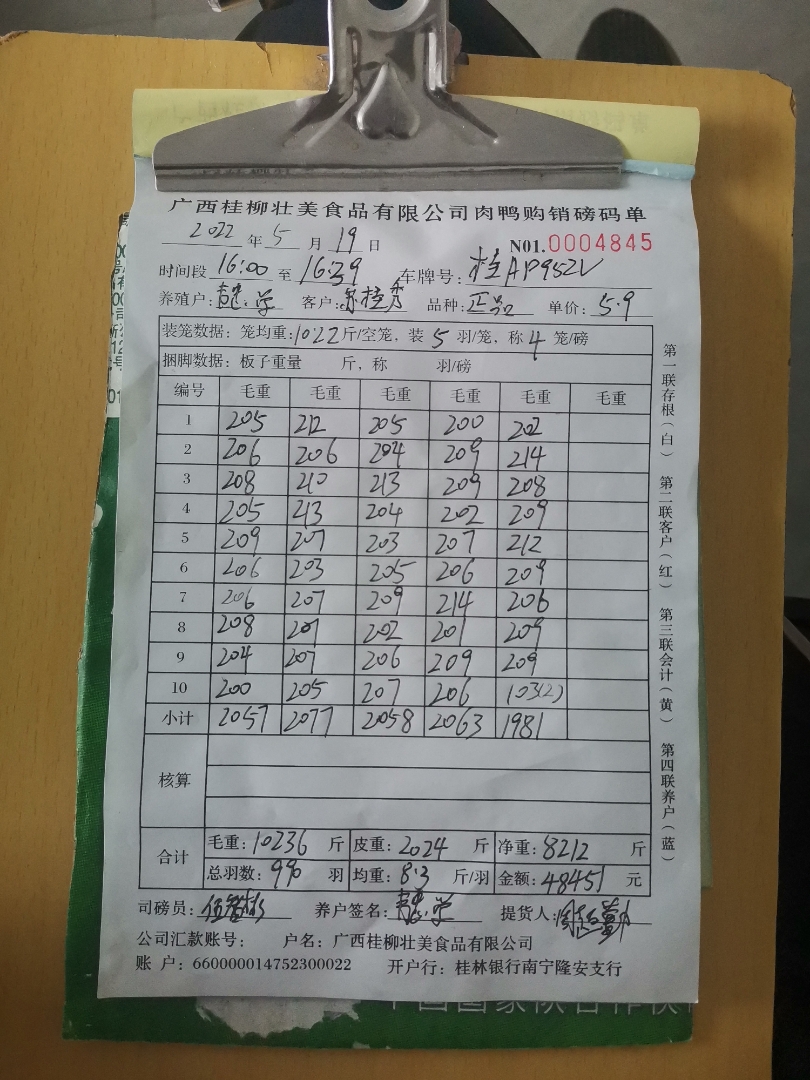 广西桂柳壮美食品有限公司肉鸭购销磅码单
2022 年 5 月 19 日 N01.0004845
时间段 16:00 至 16:39 车牌号: 桂AP952V
养殖户: 客户: 品种: 正品 单价: 5.9
装笼数据: 笼均重: 1022 斤/空笼, 装 5 羽/笼, 称 4 笼/磅
捆脚数据: 板子重量 斤, 称 羽/磅
编号 毛重 毛重 毛重 毛重 毛重 毛重
1 205 212 205 200 202
2 206 206 204 209 214
3 208 210 213 209 208
4 205 213 204 202 209
5 209 207 203 207 212
6 206 203 205 206 209
7 206 207 209 214 206
8 208 207 202 201 209
9 204 207 206 209 209
10 200 205 207 206 103(2)
小计 2057 2077 2058 2063 1981
核算
合计 毛重: 10236 斤 皮重: 2024 斤 净重: 8212 斤
总羽数: 990 羽 均重: 8.3 斤/羽 金额: 48451 元
司磅员: 养户签名: 提货人:
公司汇款账号: 户名: 广西桂柳壮美食品有限公司
账 户: 660000014752300022 开户行: 桂林银行南宁隆安支行
第一联存根(白) 第二联客户(红) 第三联会计(黄) 第四联养户(蓝)